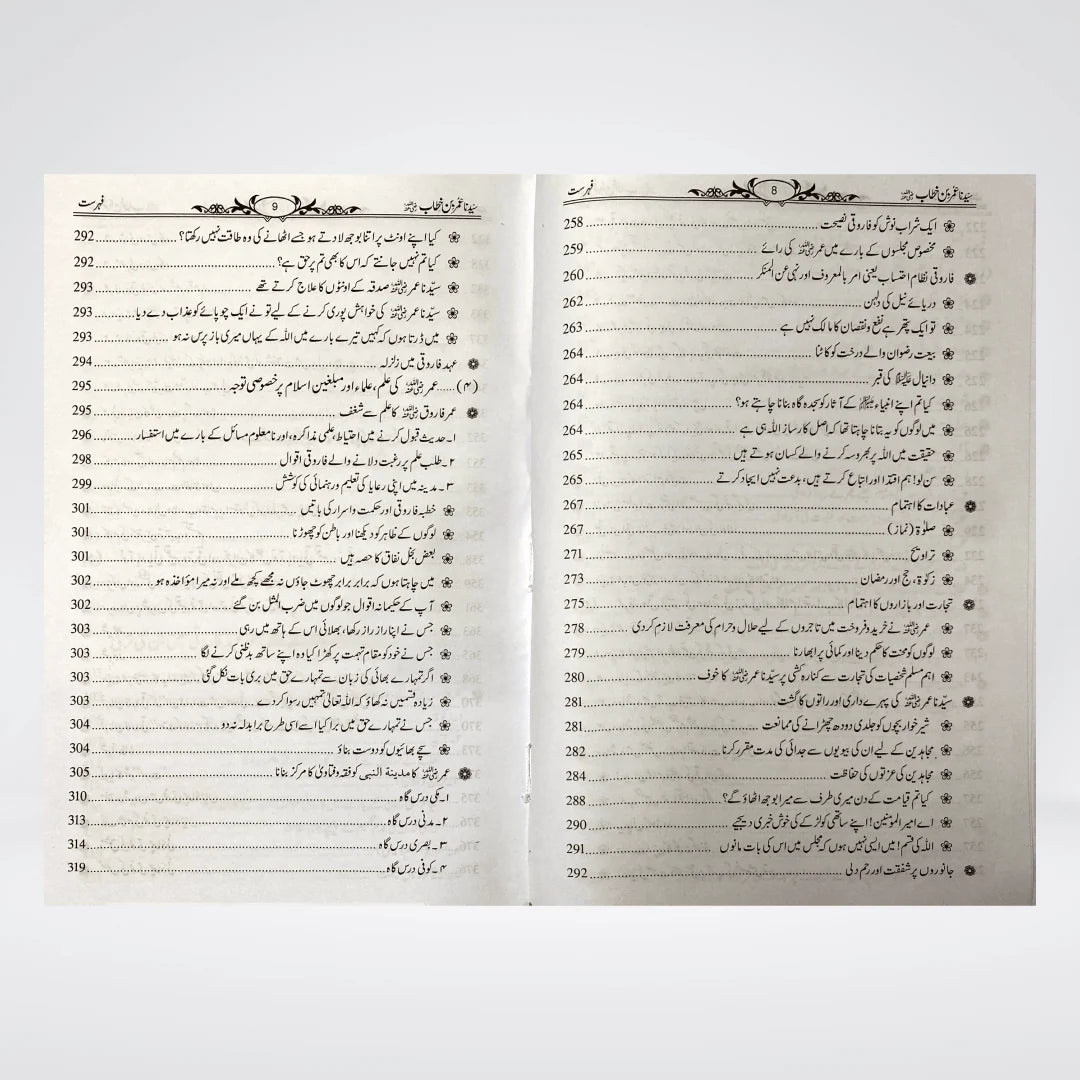 سیدنا عمر بن خطاب رضی اللہ عنہ 8 فہرست
ایک شراب نوش کو فاروقی نصیحت 258
مخصوص مجلسوں کے بارے میں عمر رضی اللہ عنہ کی رائے 259
فاروقی نظام احتساب یعنی امر بالمعروف اور نہی عن المنکر 260
دریائے نیل کی دلہن 262
تو ایک پتھر ہے نفع و نقصان کا مالک نہیں ہے 263
بیعت رضوان والے درخت کو کاٹنا 264
دانیال علیہ السلام کی قبر 264
کیا تم اپنے انبیاء علیہم السلام کے آثار کو سجدہ گاہ بنانا چاہتے ہو؟ 264
میں لوگوں کو یہ بتانا چاہتا تھا کہ اصل کارساز اللہ ہی ہے 264
حقیقت میں اللہ پر بھروسہ کرنے والے کسان ہوتے ہیں 265
سن لو! ہم اقتدا اور اتباع کرتے ہیں، بدعت نہیں ایجاد کرتے 265
عبادات کا اہتمام 267
صلوٰۃ (نماز) 267
تراویح 271
زکوٰۃ، حج اور رمضان 273
تجارت اور بازاروں کا اہتمام 275
عمر رضی اللہ عنہ نے خرید و فروخت میں تاجروں کے لیے حلال و حرام کی معرفت لازم کر دی 278
لوگوں کو محنت کا حکم دینا اور کمائی پر ابھارنا 279
اہم مسلم شخصیات کی تجارت سے کنارہ کشی پر سیدنا عمر رضی اللہ عنہ کا خوف 280
سیدنا عمر رضی اللہ عنہ کی پہرے داری اور راتوں کا گشت 281
شیر خوار بچوں کو جلدی دودھ چھڑانے کی ممانعت 281
مجاہدین کے لیے ان کی بیویوں سے جدائی کی مدت مقرر کرنا 282
مجاہدین کی عزتوں کی حفاظت 284
کیا تم قیامت کے دن میری طرف سے میرا بوجھ اٹھاؤ گے؟ 288
اے امیر المومنین! اپنے ساتھی کو لڑکے کی خوش خبری دیجیے 290
اللہ کی قسم! میں ایسی نہیں ہوں کہ مجلس میں اس کی بات مانوں 291
جانوروں پر شفقت اور رحم دلی 292
سیدنا عمر بن خطاب رضی اللہ عنہ 9 فہرست
کیا اپنے اونٹ پر اتنا بوجھ لادتے ہو جسے اٹھانے کی وہ طاقت نہیں رکھتا؟ 292
کیا تم نہیں جانتے کہ اس کا بھی تم پر حق ہے؟ 292
سیدنا عمر رضی اللہ عنہ صدقہ کے اونٹوں کا علاج کرتے تھے 293
سیدنا عمر رضی اللہ عنہ کی خواہش پوری کرنے کے لیے تو نے ایک چوپائے کو عذاب دے دیا 293
میں ڈرتا ہوں کہ کہیں تیرے بارے میں اللہ کے یہاں میری باز پرس نہ ہو 293
عہد فاروقی میں زلزلہ 294
(۴) عمر رضی اللہ عنہ کی علم، علماء اور مبلغین اسلام پر خصوصی توجہ 295
عمر فاروق رضی اللہ عنہ کا علم سے شغف 295
۱۔ حدیث قبول کرنے میں احتیاط، علمی مذاکرہ، اور نا معلوم مسائل کے بارے میں استفسار 296
۲۔ طلب علم پر رغبت دلانے والے فاروقی اقوال 298
۳۔ مدینہ میں اپنی رعایا کی تعلیم و رہنمائی کی کوشش 299
خطبہ فاروقی اور حکمت و اسرار کی باتیں 301
لوگوں کے ظاہر کو دیکھنا اور باطن کو چھوڑنا 301
بعض بخل نفاق کا حصہ ہیں 301
میں چاہتا ہوں کہ برابر برابر چھوٹ جاؤں نہ مجھے کچھ ملے اور نہ میرا مؤاخذہ ہو 302
آپ کے حکیمانہ اقوال جو لوگوں میں ضرب المثل بن گئے 302
جس نے اپنا راز راز رکھا، بھلائی اس کے ہاتھ میں رہی 303
جس نے خود کو مقام تہمت پر کھڑا کیا وہ اپنے ساتھ بدظنی کرنے لگا 303
اگر تمہارے بھائی کی زبان سے تمہارے حق میں بری بات نکل گئی 303
زیادہ قسمیں نہ کھاؤ کہ اللہ تعالیٰ تمہیں رسوا کر دے 303
جس نے تمہارے حق میں برا کیا اسے اسی طرح برا بدلہ نہ دو 304
سچے بھائیوں کو دوست بناؤ 304
عمر رضی اللہ عنہ کا مدینة النبی کو فقہ و فتاویٰ کا مرکز بنانا 305
۱۔ مکی درس گاہ 310
۲۔ مدنی درس گاہ 313
۳۔ بصری درس گاہ 314
۴۔ کوفی درس گاہ 319